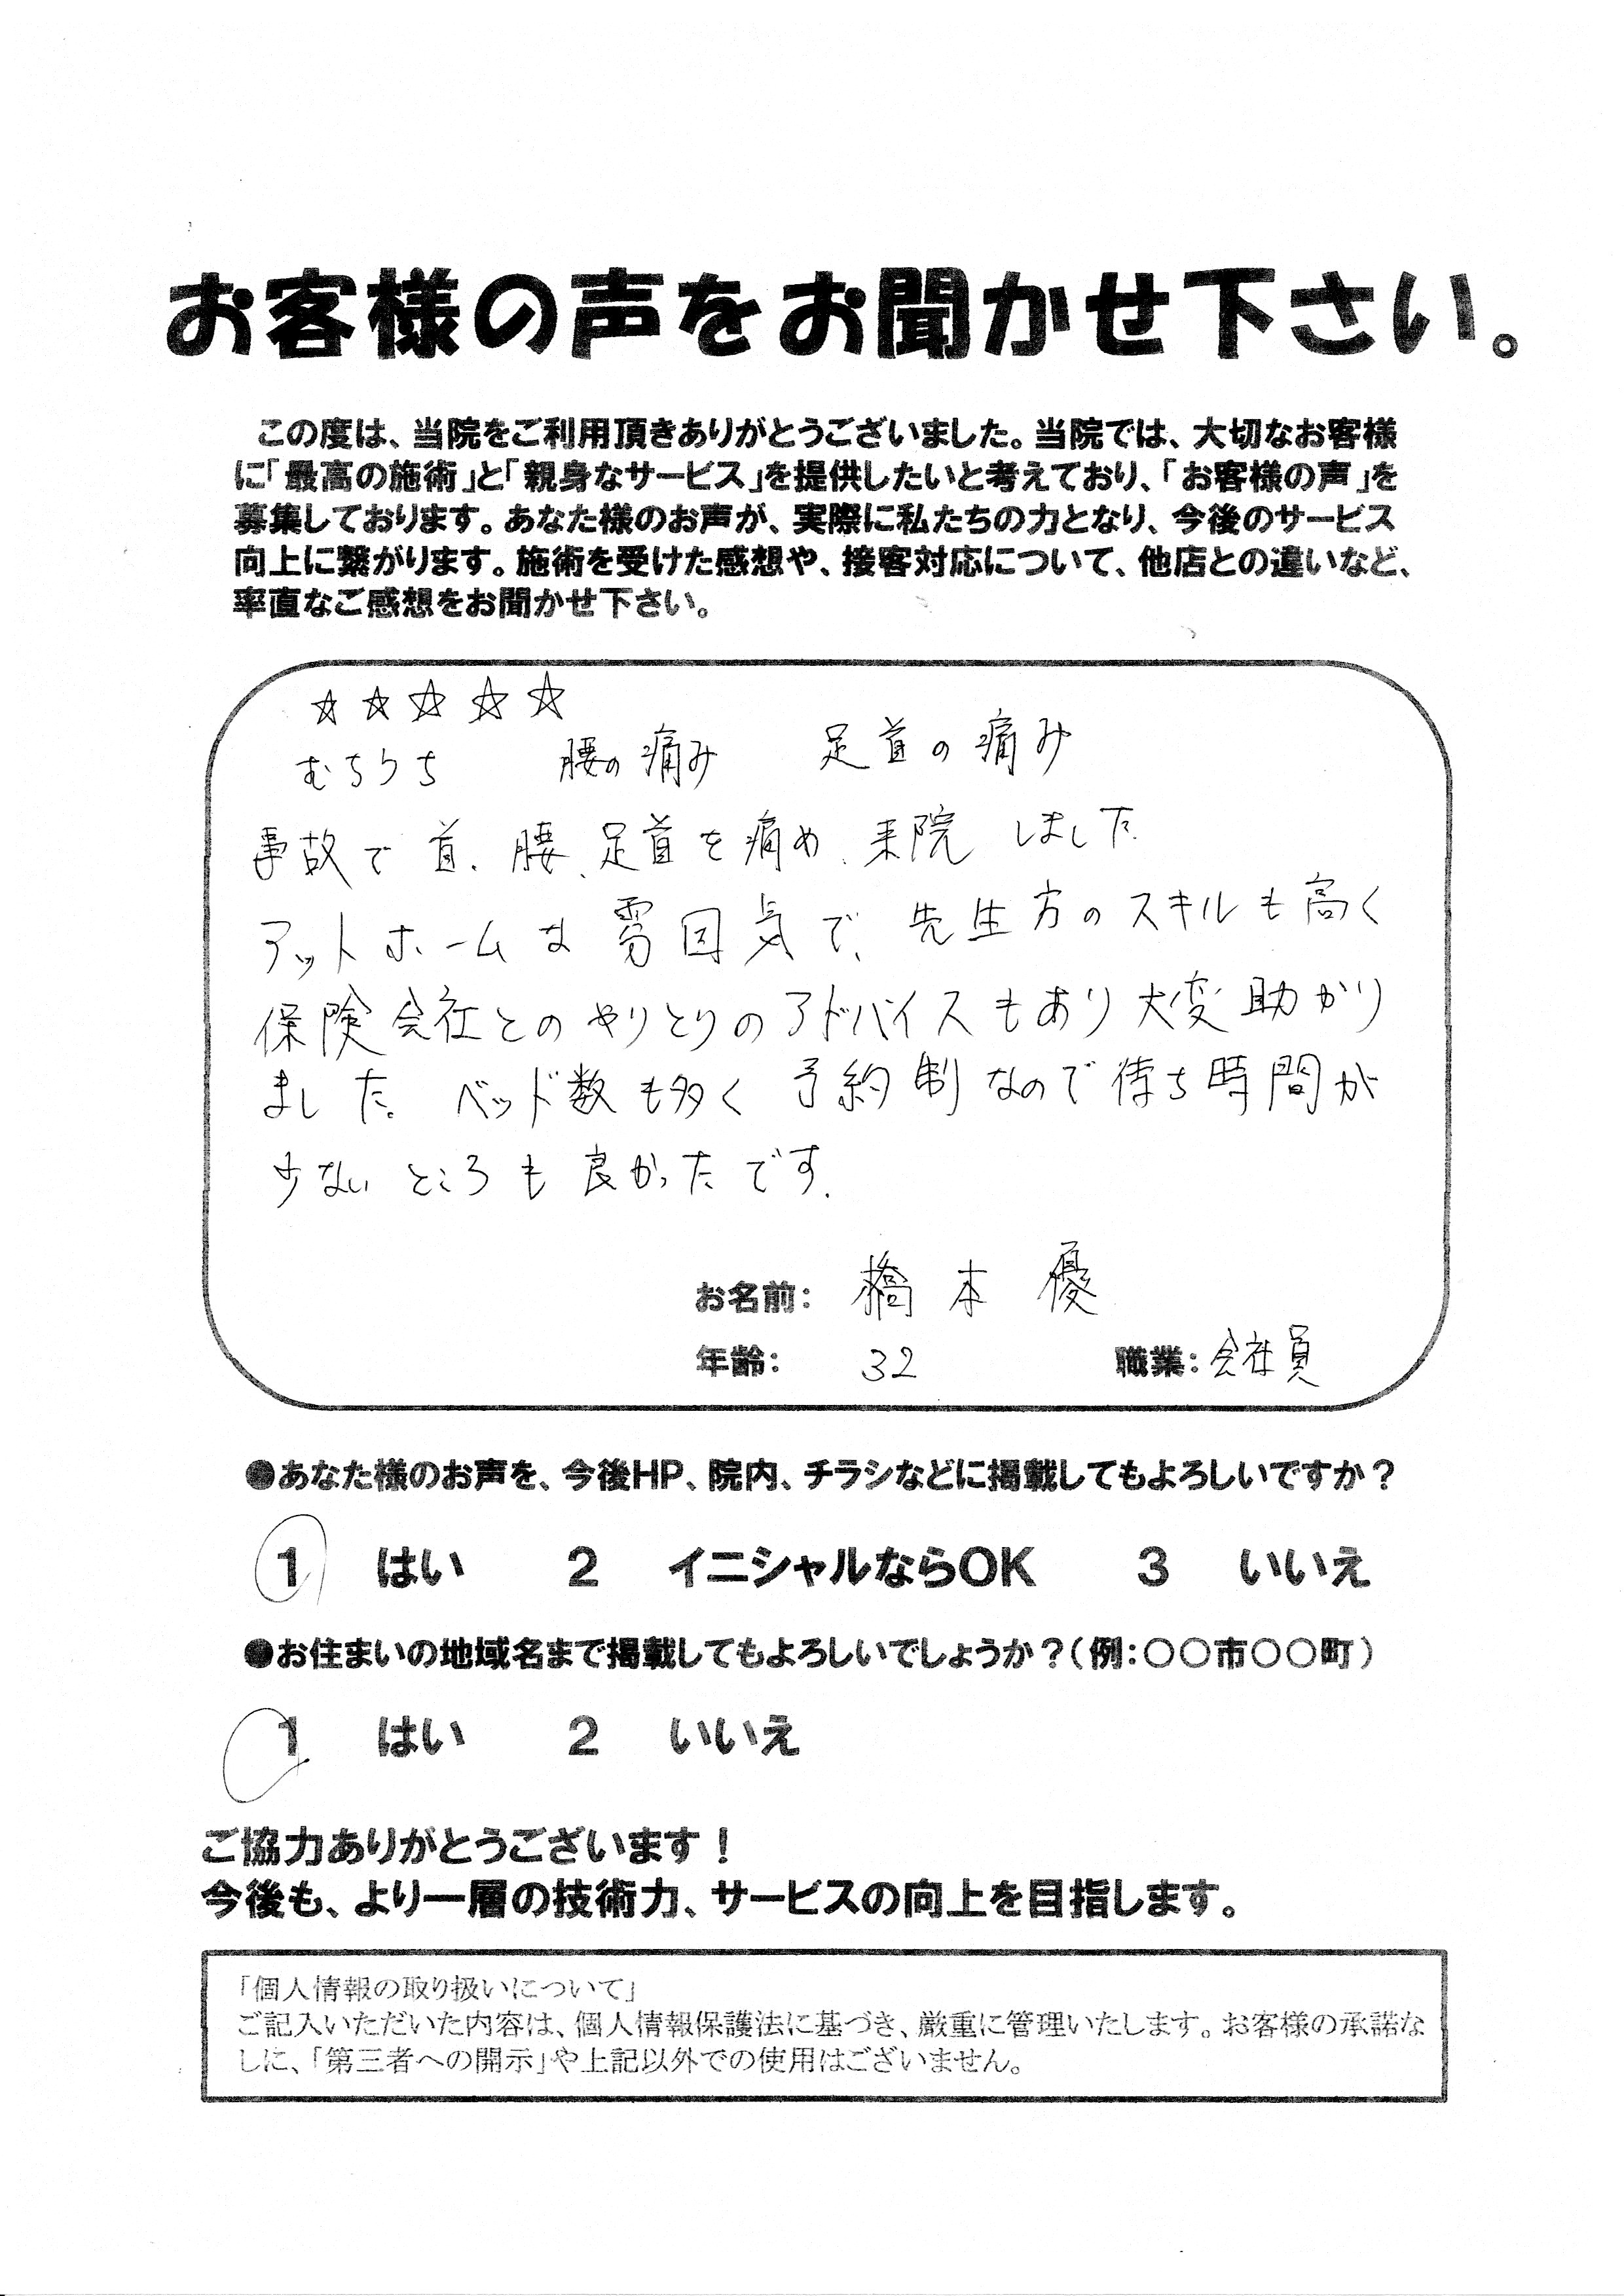 お客様の声をお聞かせ下さい。
この度は、当院をご利用頂きありがとうございました。当院では、大切なお客様
に「最高の施術」と「親身なサービス」を提供したいと考えており、「お客様の声」を
募集しております。あなた様のお声が、実際に私たちの力となり、今後のサービス
向上に繋がります。施術を受けた感想や、接客対応について、他店との違いなど、
率直なご感想をお聞かせ下さい。
☆☆☆☆☆
むちうち 腰の痛み 足首の痛み
事故で首、腰、足首を痛め、来院しました。
アットホームな雰囲気で、先生方のスキルも高く
保険会社とのやりとりのアドバイスもあり大変助かり
ました。ベッド数も多く予約制なので待ち時間が
少ないところも良かったです。
お名前: 橋本 優
年齢: 32 職業: 会社員
●あなた様のお声を、今後HP、院内、チラシなどに掲載してもよろしいですか？
1 はい 2 イニシャルならOK 3 いいえ
●お住まいの地域名まで掲載してもよろしいでしょうか？(例:〇〇市〇〇町)
1 はい 2 いいえ
ご協力ありがとうございます！
今後も、より一層の技術力、サービスの向上を目指します。
「個人情報の取り扱いについて」
ご記入いただいた内容は、個人情報保護法に基づき、厳重に管理いたします。お客様の承諾な
しに、「第三者への開示」や上記以外での使用はございません。